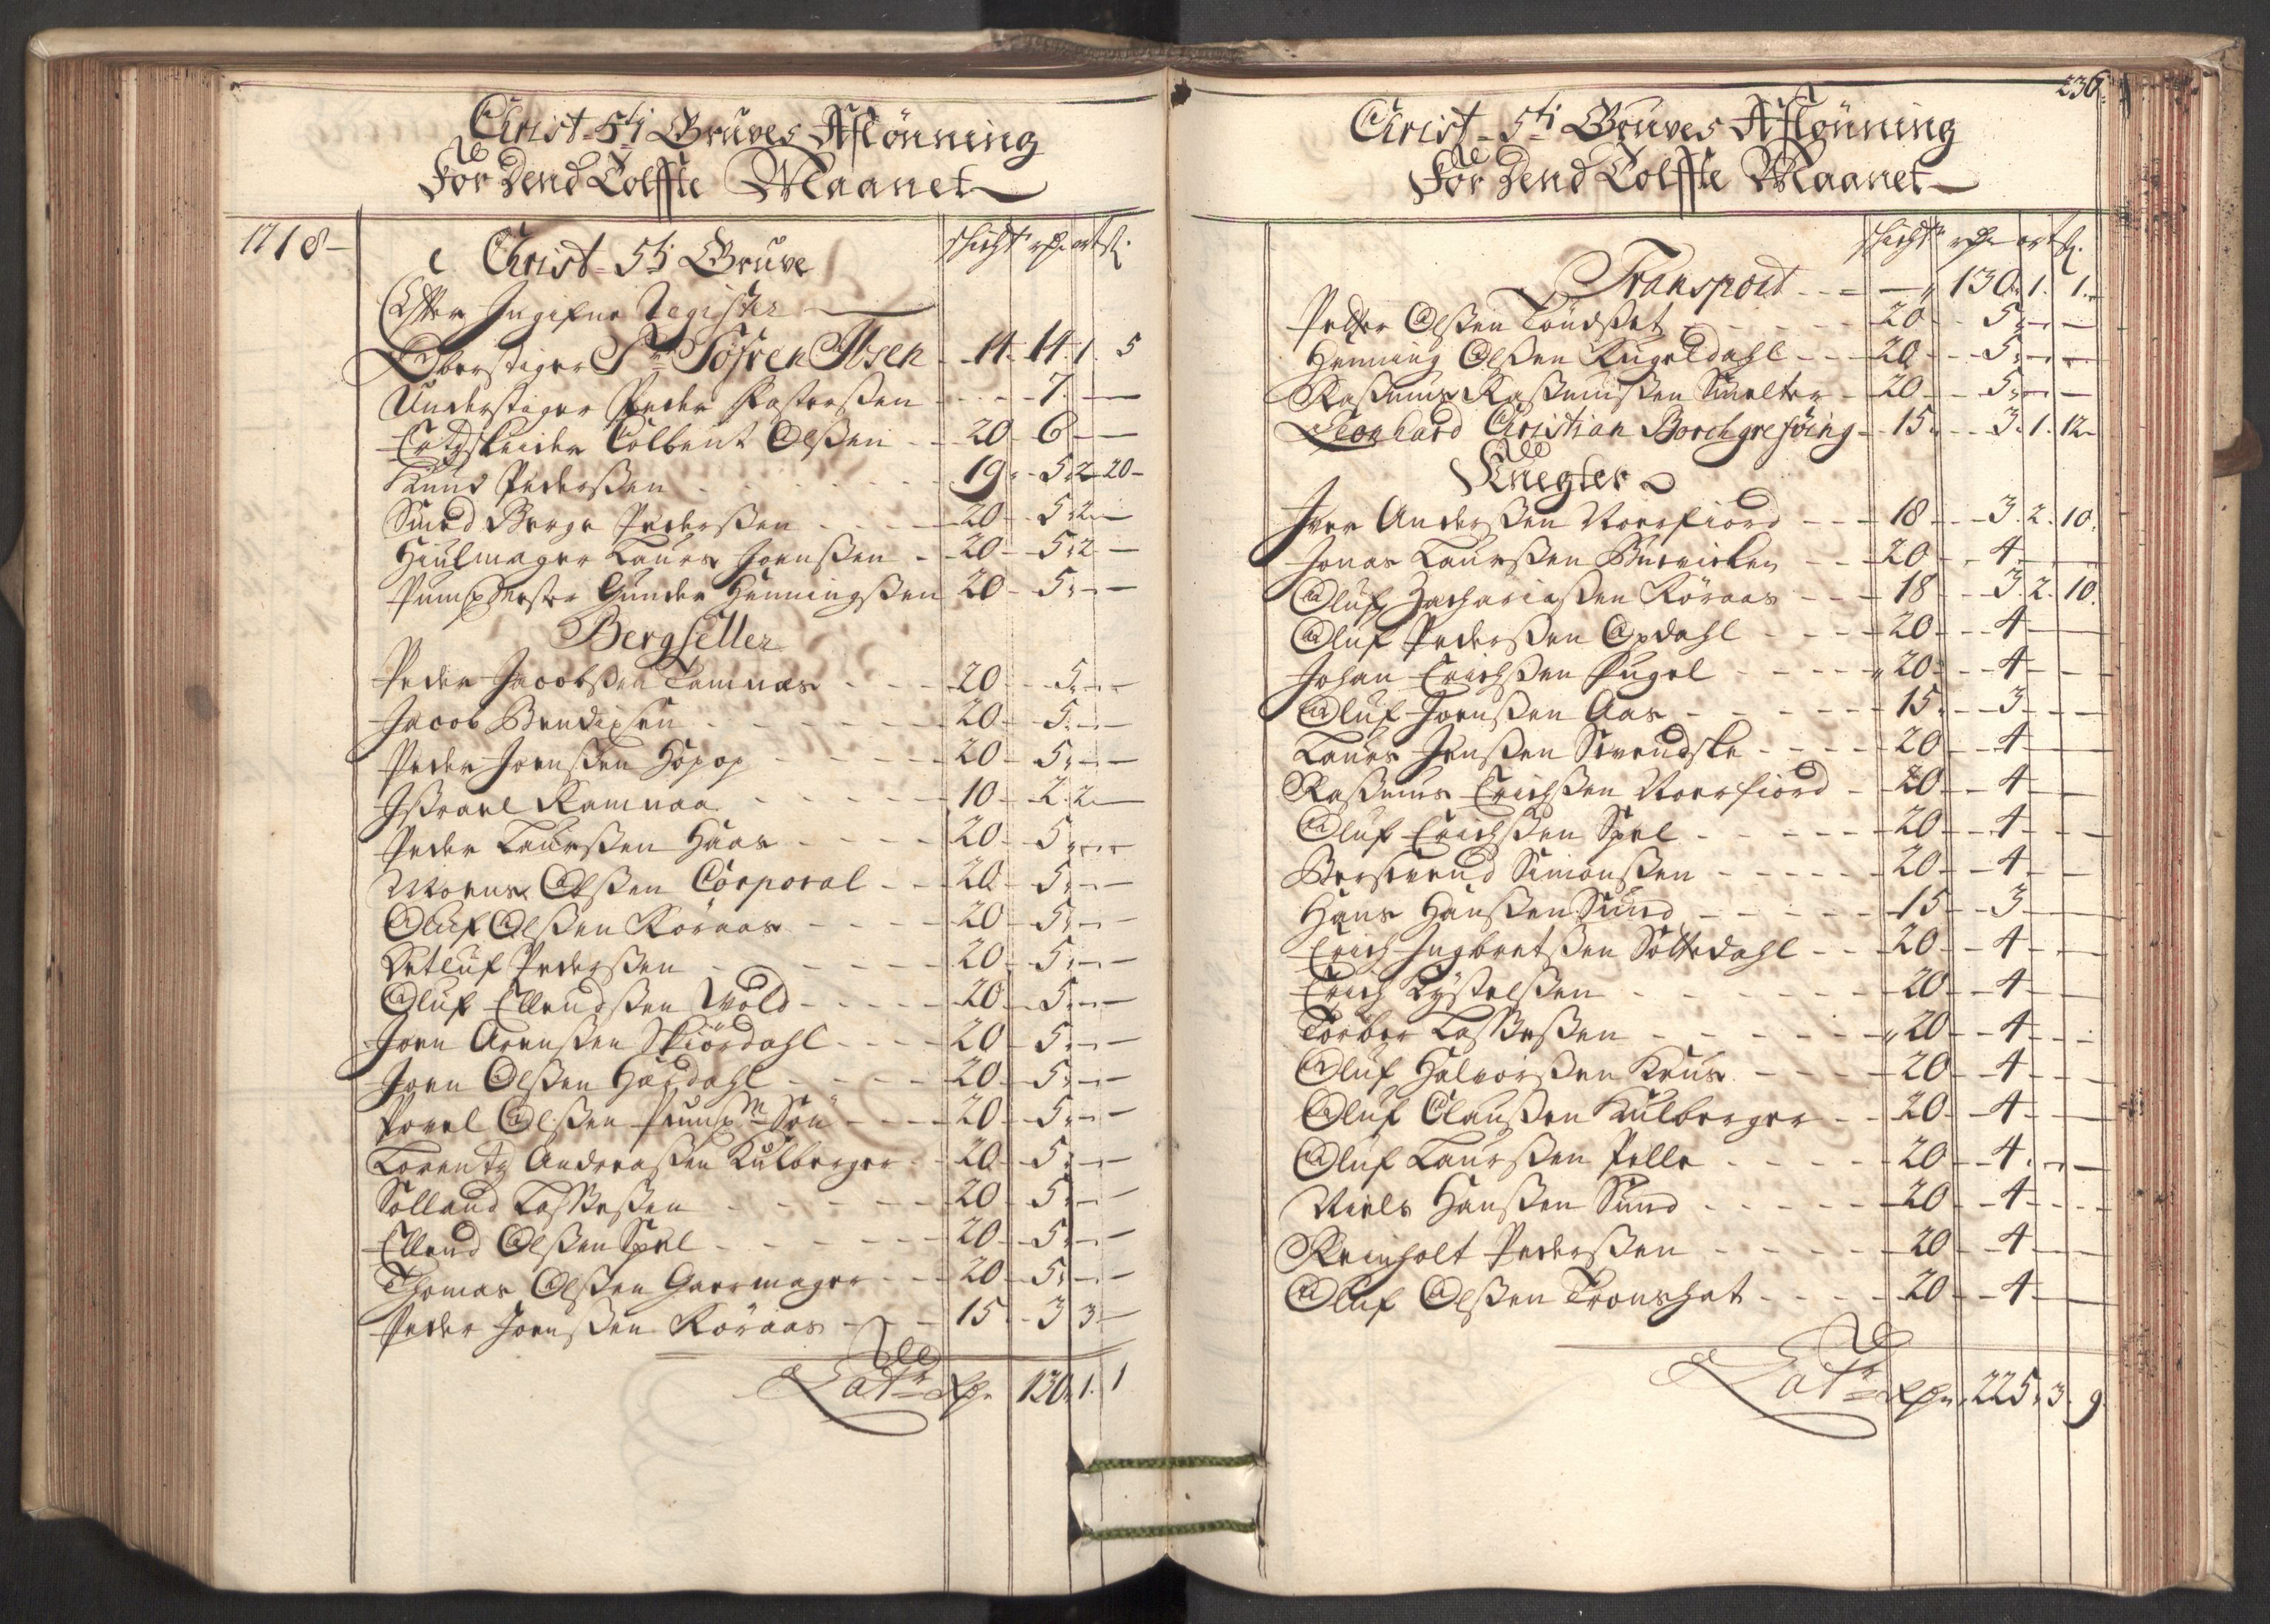 Christ - 5ti Gruves Aflönning
For Dend Tolffte Maanet
1718 -
Christ - 5ti Gruve
shicht rdr ort s.
Efter Ingifne Register
Oberstiger Sr Söfren Ibsen - 14 - 14. 1. 5
Understiger Peder Pastorßen - - - 7. - -
Ertzskeider Colbent Olßen - - 20 - 6 - -
Knud Pederßen - - - 19 - 5. 2. 20 -
Smed Berge Pederßen - - - 20 - 5. 2. -
Hiulmager Laurs Joenßen - 20 - 5. 2. -
Pumpmester Gunder Henningßen 20 - 5. - -
Bergseller
Peder Jacobßen Tamnæs - - - 20 - 5. - -
Jacob Bendixsen - - - 20 - 5. - -
Peder Joenßen Hopop - - - 20 - 5. - -
Ißrael Ramnaa - - - 10 - 2. 2. -
Peder Laurßen Haas - - - 20 - 5. - -
Moens Olßen Corporal - - 20 - 5. - -
Oluf Olßen Röraas - - - 20 - 5. - -
Detluf Pederßen - - - 20 - 5. - -
Oluf Ellendßen Wold - - - 20 - 5. - -
Joen Arenßen Skiördahl - - - 20 - 5. - -
Joen Olßen Haudahl - - - 20 - 5. - -
Povel Olßen Pumpm Sön - - 20 - 5. - -
Lorentz Andreaßen Kulberger - 20 - 5. - -
Solland Taßteßen - - - 20 - 5. - -
Ellend Olßen Spel - - - 20 - 5. - -
Thomas Olßen Gaermager - - 20 - 5. - -
Peder Joenßen Röraas - - - 15 - 3 3 -
Latr Rdr 130. 1. 1
236.
Christ - 5ti Gruves Aflönning
For Dend Tolffte Maanet
shicht rdr ort s.
Transport - - - - 130. 1. 1.
Petter Olßen Töndßet - - - 20 - 5. - -
Henning Olßen Kugeldahl - - 20 - 5. - -
Raßmus Raßmusßen Smelter - 20 - 5. - -
Leonhard Christian Borchgrefving - 15 - 3. 1. 12 -
Knegter
Iver Anderßen Noerfiord - - 18 - 3. 2. 10.
Jonas Laurßen Burvicken - - 20 - 4 - -
Oluf Zachariaßen Röraas - - 18 - 3. 2. 10.
Oluf Pederßen Opdahl - - - 20 - 4 - -
Johan Erichßen Kugel - - - 20 - 4 - -
Oluf Joenßen Aas - - - 15 - 3 - -
Laurs Jenßen Svendske - - - 20 - 4 - -
Raßmus Erichßen Noerfiord - 20 - 4 - -
Oluf Erichßen Spel - - - 20 - 4 - -
Berswend Simonßen - - - 20 - 4 - -
Hans Hanßen Sund - - - 15 - 3 - -
Erich Ingbretßen Soltedahl - - 20 - 4 - -
Erich Kystelßen - - - 20 - 4 - -
Torber Taßteßen - - - 20 - 4 - -
Oluf Halvorßen Krus - - - 20 - 4 - -
Oluf Claußen Kulberger - - 20 - 4 - -
Oluf Laurßen Pelle - - - 20 - 4 - -
Niels Hanßen Sund - - - 20 - 4 - -
Reinholt Pederßen - - - 20 - 4 - -
Oluf Olßen Tronshat - - - 20 - 4 - -
Latr Rdr 225. 3. 9.